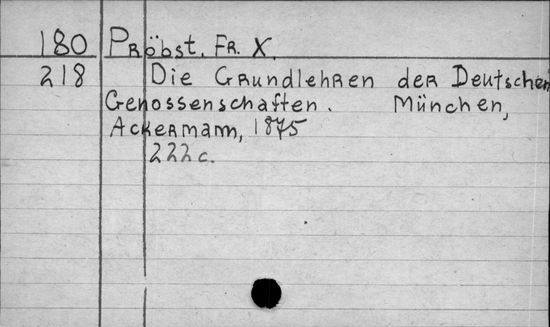 180 Pröbst, Fr. X.
218 Die Grundlehren der Deutschen
Genossenschaften. München,
Ackermann, 1875
222 c.